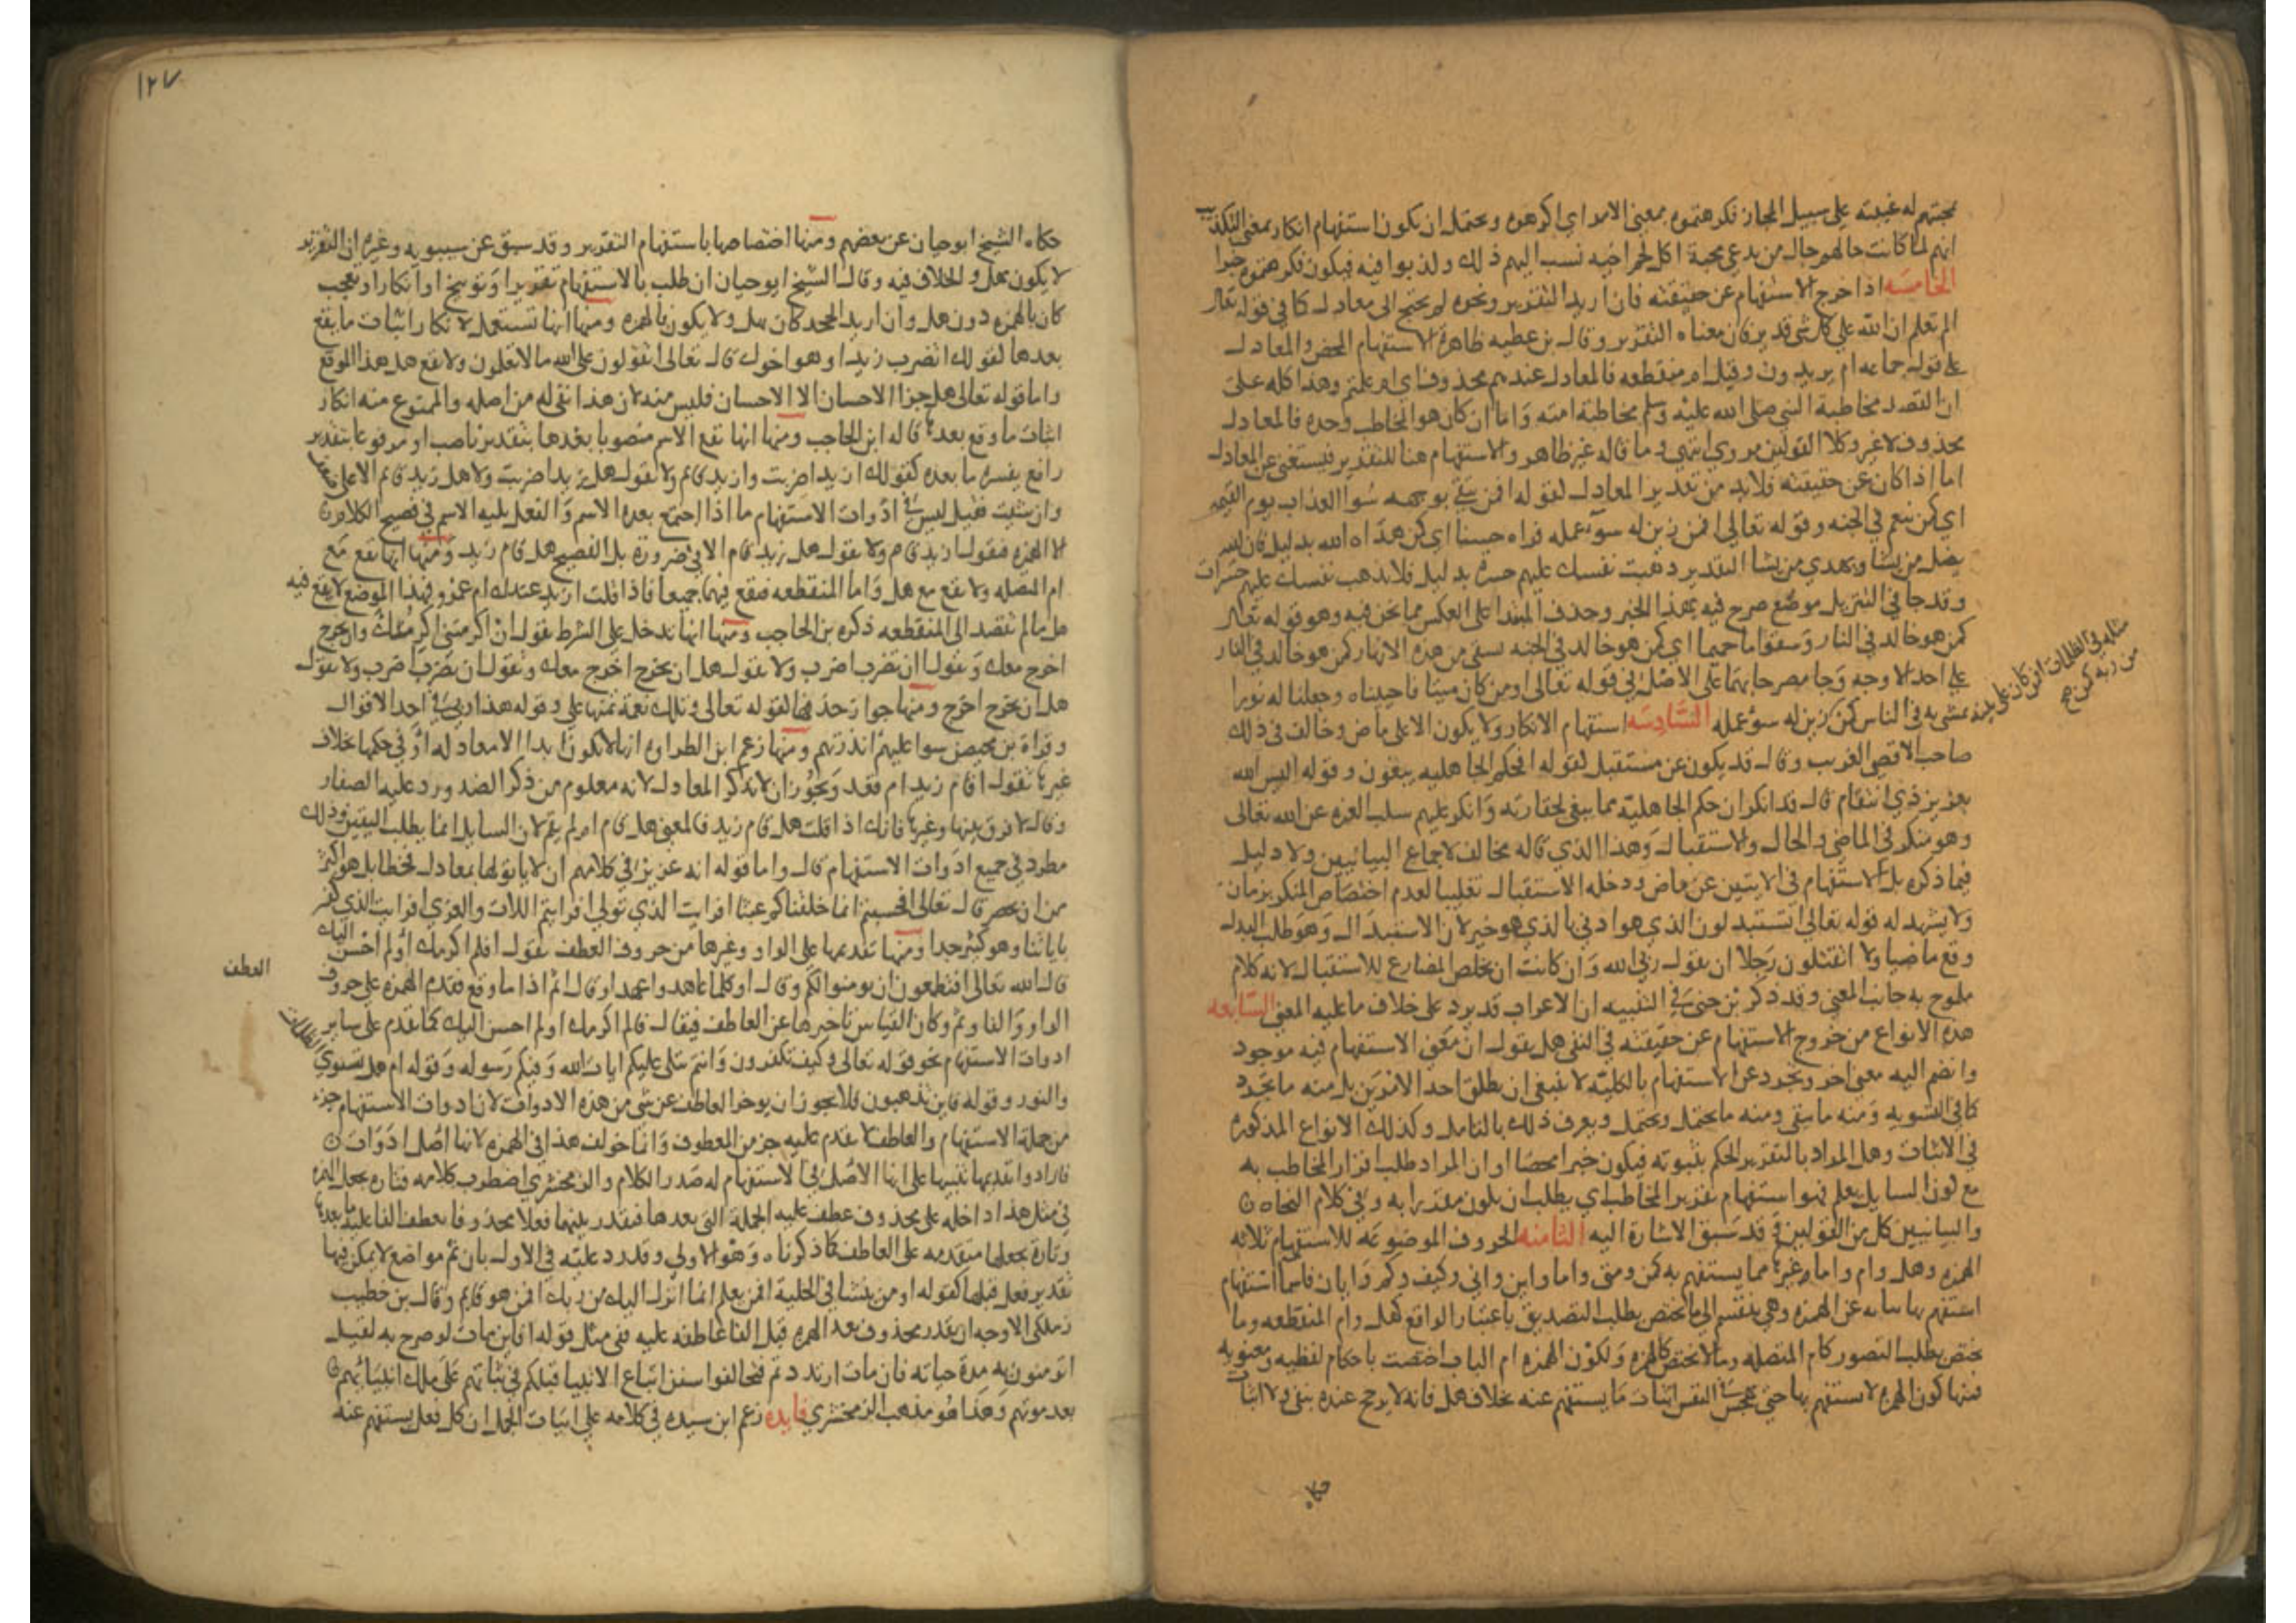 محبتهم له غيبته على سبيل المجاز فكرهتموه بمعنى الامر اي اكرهوه ويحتمل ان يكون استفهام انكار بمعنى التكذيب
انهم لما كانت حالهم حال من يدعي محبة اكل لحم اخيه نسب اليهم ذلك وكذبوا فيه فيكون فكرهتموه خبرا
الخامسه اذا خرج الاستفهام عن حقيقته فان اريد التقرير ونحوه لم يحتج الى معادل كما في قوله تعالى
الم تعلم ان الله على كل شي قدير فان معناه التقرير وقال بن عطيه ظاهره الاستفهام المحض والمعادل
على قول جماعه ام يريدون وقيل ام منقطعه فالمعادل عندهم محذوف اي ام علمتم وهذا كله على
ان القصد مخاطبة النبي صلى الله عليه وسلم مخاطبة امته واما ان كان هو المخاطب وحده فالمعادل
محذوف لا غير وكلا القولين مروي انتهى وما قاله غير ظاهر والاستفهام هنا للتقرير فيستغنى عن المعادل
اما اذا كان عن حقيقته فلا بد من تقدير المعادل لقوله افمن يتقي بوجهه سوا العذاب يوم القيمه
اي كمن ينعم في الجنه وقوله تعالى افمن زين له سوء عمله فراه حسنا اي كمن هداه الله بدليل فان الله
يضل من يشا ويهدي من يشا التقدير ذهبت نفسك عليهم حسرة بدليل فلا تذهب نفسك عليهم حسرات
وقد جا في التنزيل موضع صرح فيه بهذا الخبر وحذف المبتدا على العكس مما نحن فيه وهو قوله تعالى
كمن هو خالد في النار وسقوا ما حميما اي كمن هو خالد في الجنه يسقى من هذه الانهار كمن هو خالد في النار
على احد الاوجه وجا مصرحا بهما على الاصل في قوله تعالى اومن كان ميتا فاحييناه وجعلنا له نورا
يمشي به في الناس كمن زين له سوء عمله السادسه استفهام الانكار ولا يكون الا على ماض وخالف في ذلك
مثله في الظلمات افمن كان على بينة
من ربه كمن صح
صاحب الاقصى القريب وقال قد يكون عن مستقبل لقوله افحكم الجاهليه يبغون وقوله اليس الله
بعزيز ذي انتقام قال قد انكر ان حكم الجاهلية مما يبغى لحقارته وانكر عليهم سلب العزه عن الله تعالى
وهو منكر في الماضي والحال والاستقبال وهذا الذي قاله مخالف لاجماع البيانيين ولا دليل
فيما ذكره بل الاستفهام في الايتين عن ماض ودخله الاستقبال تغليبا لعدم اختصاص المنكر بزمان
ولا يشهد له قوله تعالى اتستبدلون الذي هو ادنى بالذي هو خير لان الاستبدال وهو طلب البدل
وقع ماضيا ولا اتقتلون رجلا ان يقول ربي الله وان كانت ان تخلص المضارع للاستقبال لانه كلام
ملوح به جانب المعنى وقد ذكر بن جني في التنبيه ان الاعراب قد يرد على خلاف ما عليه المعنى السابعه
هذه الانواع من خروج الاستفهام عن حقيقته في النفي هل يقول ان معنى الاستفهام فيه موجود
وانضم اليه معنى اخر وتجرد عن الاستفهام بالكليه لا ينبغي ان يطلق احد الامرين بل منه ما تجرد
كما في التسويه ومنه ما بقي ومنه ما يحتمل ويحتمل ويعرف ذلك بالتامل وكذلك الانواع المذكوره
في الاثبات وهل المراد بالتقرير الحكم بثبوته فيكون خبرا محضا او ان المراد طلب اقرار المخاطب به
مع كون السايل يعلم فهو استفهام تقرير المخاطب اي يطلب ان يكون مقدرا به وفي كلام النحاه
والبيانيين كل من القولين وقد سبق الاشاره اليه الثامنه الحروف الموضوعه للاستفهام ثلاثه
الهمزه وهل وام واما غيرها مما يستفهم به كمن ومتى وما واين واني وكيف وكم وايان فاسما استفهام
استفهم بها نيابه عن الهمزه وهي تنقسم الى ما يختص بطلب التصديق باعتبار الواقع كهل وام المنقطعه وما
يختص بطلب التصور كام المتصله وما لا يختص كالهمزه ولكون الهمزه ام الباب اختصت باحكام لفظيه ومعنويه
فمنها كون الهمزه لا يستفهم بها حتى يهجس في النفس اثبات ما يستفهم عنه بخلاف هل فانه لا يرجح عنده بنفي ولا اثبات
حكاه
١٢٧
حكاه الشيخ ابو حيان عن بعضهم ومنها اختصاصها باستفهام التقرير وقد سبق عن سيبويه وغيره ان التقرير
لا يكون بهل والخلاف فيه وقال الشيخ ابو حيان ان طلب بالاستفهام تقريرا او توبيخ او انكار او تعجب
كان بالهمزه دون هل وان اريد الجحد كان بهل ولا يكون بالهمزه ومنها انها تستعمل لانكار اثبات ما يقع
بعدها كقولك اتضرب زيدا وهو اخوك قال تعالى اتقولون على الله مالا تعلمون ولا تقع هل هذا الموقع
واما قوله تعالى هل جزا الاحسان الا الاحسان فليس منه لان هذا نفي له من اصله والممنوع منه انكار
اثبات ما وقع بعدها قاله ابن الحاجب ومنها انها تقع الاسم منصوبا بعدها بتقدير ناصب او مرفوعا بتقدير
رافع يفسره ما بعده كقولك ازيدا ضربت وازيد قام ولا تقول هل زيدا ضربت ولا هل زيد قام الا على ضعف
وان شيت فقيل ليس في ادوات الاستفهام ما اذا اجتمع بعده الاسم والفعل يليه الاسم في فصيح الكلام
الا الهمزه فتقول ازيد قام ولا تقول هل زيد قام الا في ضرورة بل الفصيح هل قام زيد ومنها انها تقع مع
ام المتصله ولا تقع مع هل واما المنقطعه فتقع فيهما جميعا فاذا قلت ازيد عندك ام عمرو فهذا الموضع لا يقع فيه
هل ما لم تقصد الى المنقطعه ذكره بن الحاجب ومنها انها تدخل على الشرط تقول ان اكرمتني اكرمتك وان تخرج
اخرج معك وتقول اان تضرب اضرب ولا تقول هل ان تخرج اخرج معك وتقول ان تضرب اضرب ولا تقول
هل ان تخرج اخرج ومنها جواز حذفها لقوله تعالى وتلك نعمة تمنها علي وقوله هذا ربي في احد الاقوال
وقراة بن محيصن سوا عليهم انذرتهم ومنها زعم ابن الطراوه انها لا يكون ابدا الا معادله او في حكمها بخلاف
غيرها تقول اقام زيد ام قعد ويجوز ان لا يذكر المعادل لانه معلوم من ذكر الضد ورد عليه الصفار
وقال لا فرق بينها وغيرها فانك اذا قلت هل قام زيد فالمعنى هل قام ام لم يقم لان السايل انما يطلب اليقين وذلك
مطرد في جميع ادوات الاستفهام قال واما قوله انه عزيز في كلامهم ان لا ياتوا لها بمعادل فخطا بل هو اكثر
من ان يحصر قال تعالى افحسبتم انما خلقناكم عبثا افرايت الذي تولى افرايتم اللات والعزى افرايت الذي كفر
باياتنا وهو كثير جدا ومنها تقديمها على الواو وغيرها من حروف العطف تقول افلم اكرمك اولم احسن اليك
العطف
قال الله تعالى افتطمعون ان يومنوا لكم وقال اوكلما عاهدوا عهدا وقال اثم اذا ما وقع فتقدم الهمزه على حروف
الواو والفا وثم وكان القياس تاخيرها عن العاطف فيقال فالم اكرمك اولم احسن اليك كما تقدم على ساير
ادوات الاستفهام نحو قوله تعالى وكيف تكفرون وانتم تتلى عليكم ايات الله وفيكم رسوله وقوله ام هل تستوي الظلمات
والنور وقوله فاين تذهبون فلا يجوز ان يوخر العاطف عن شي من هذه الادوات لان ادوات الاستفهام جزء
من جملة الاستفهام والعاطف لا يقدم عليه جز من المعطوف وانما خولف هذا في الهمزه لانها اصل ادوات
فارادوا تقديمها تنبيها على انها الاصل في الاستفهام له صدر الكلام والزمخشري اضطرب كلامه فتاره يجعل الهمزه
في مثل هذا داخله على محذوف عطف عليه الجملة التي بعدها فيقدر بينهما فعلا محذوفا يعطف الفا عليه ما بعدها
وتارة يجعلها متقدمه على العاطف كما ذكرناه وهو الاولى وقد رد عليه في الاول بان ثم مواضع لا يمكن فيها
تقدير فعل قبلها كقوله اومن ينشا في الحلية افمن يعلم انما انزل اليك من ربك افمن هو قايم وقال بن خطيب
زملكى الاوجه ان يقدر محذوف بعد الهمزه قبل الفا عاطفه عليه ففي مثل قوله افاين مات لو صرح به لقيل
اتومنون به مدة حياته فان مات ارتددتم فتخالفوا سنن اتباع الانبيا قبلكم في ثباتهم على ملك انبيائهم
بعد موتهم وهذا هو مذهب الزمخشري فايده زعم ابن سيده في كلامه على ابيات الجمل ان كل فعل يستفهم عنه